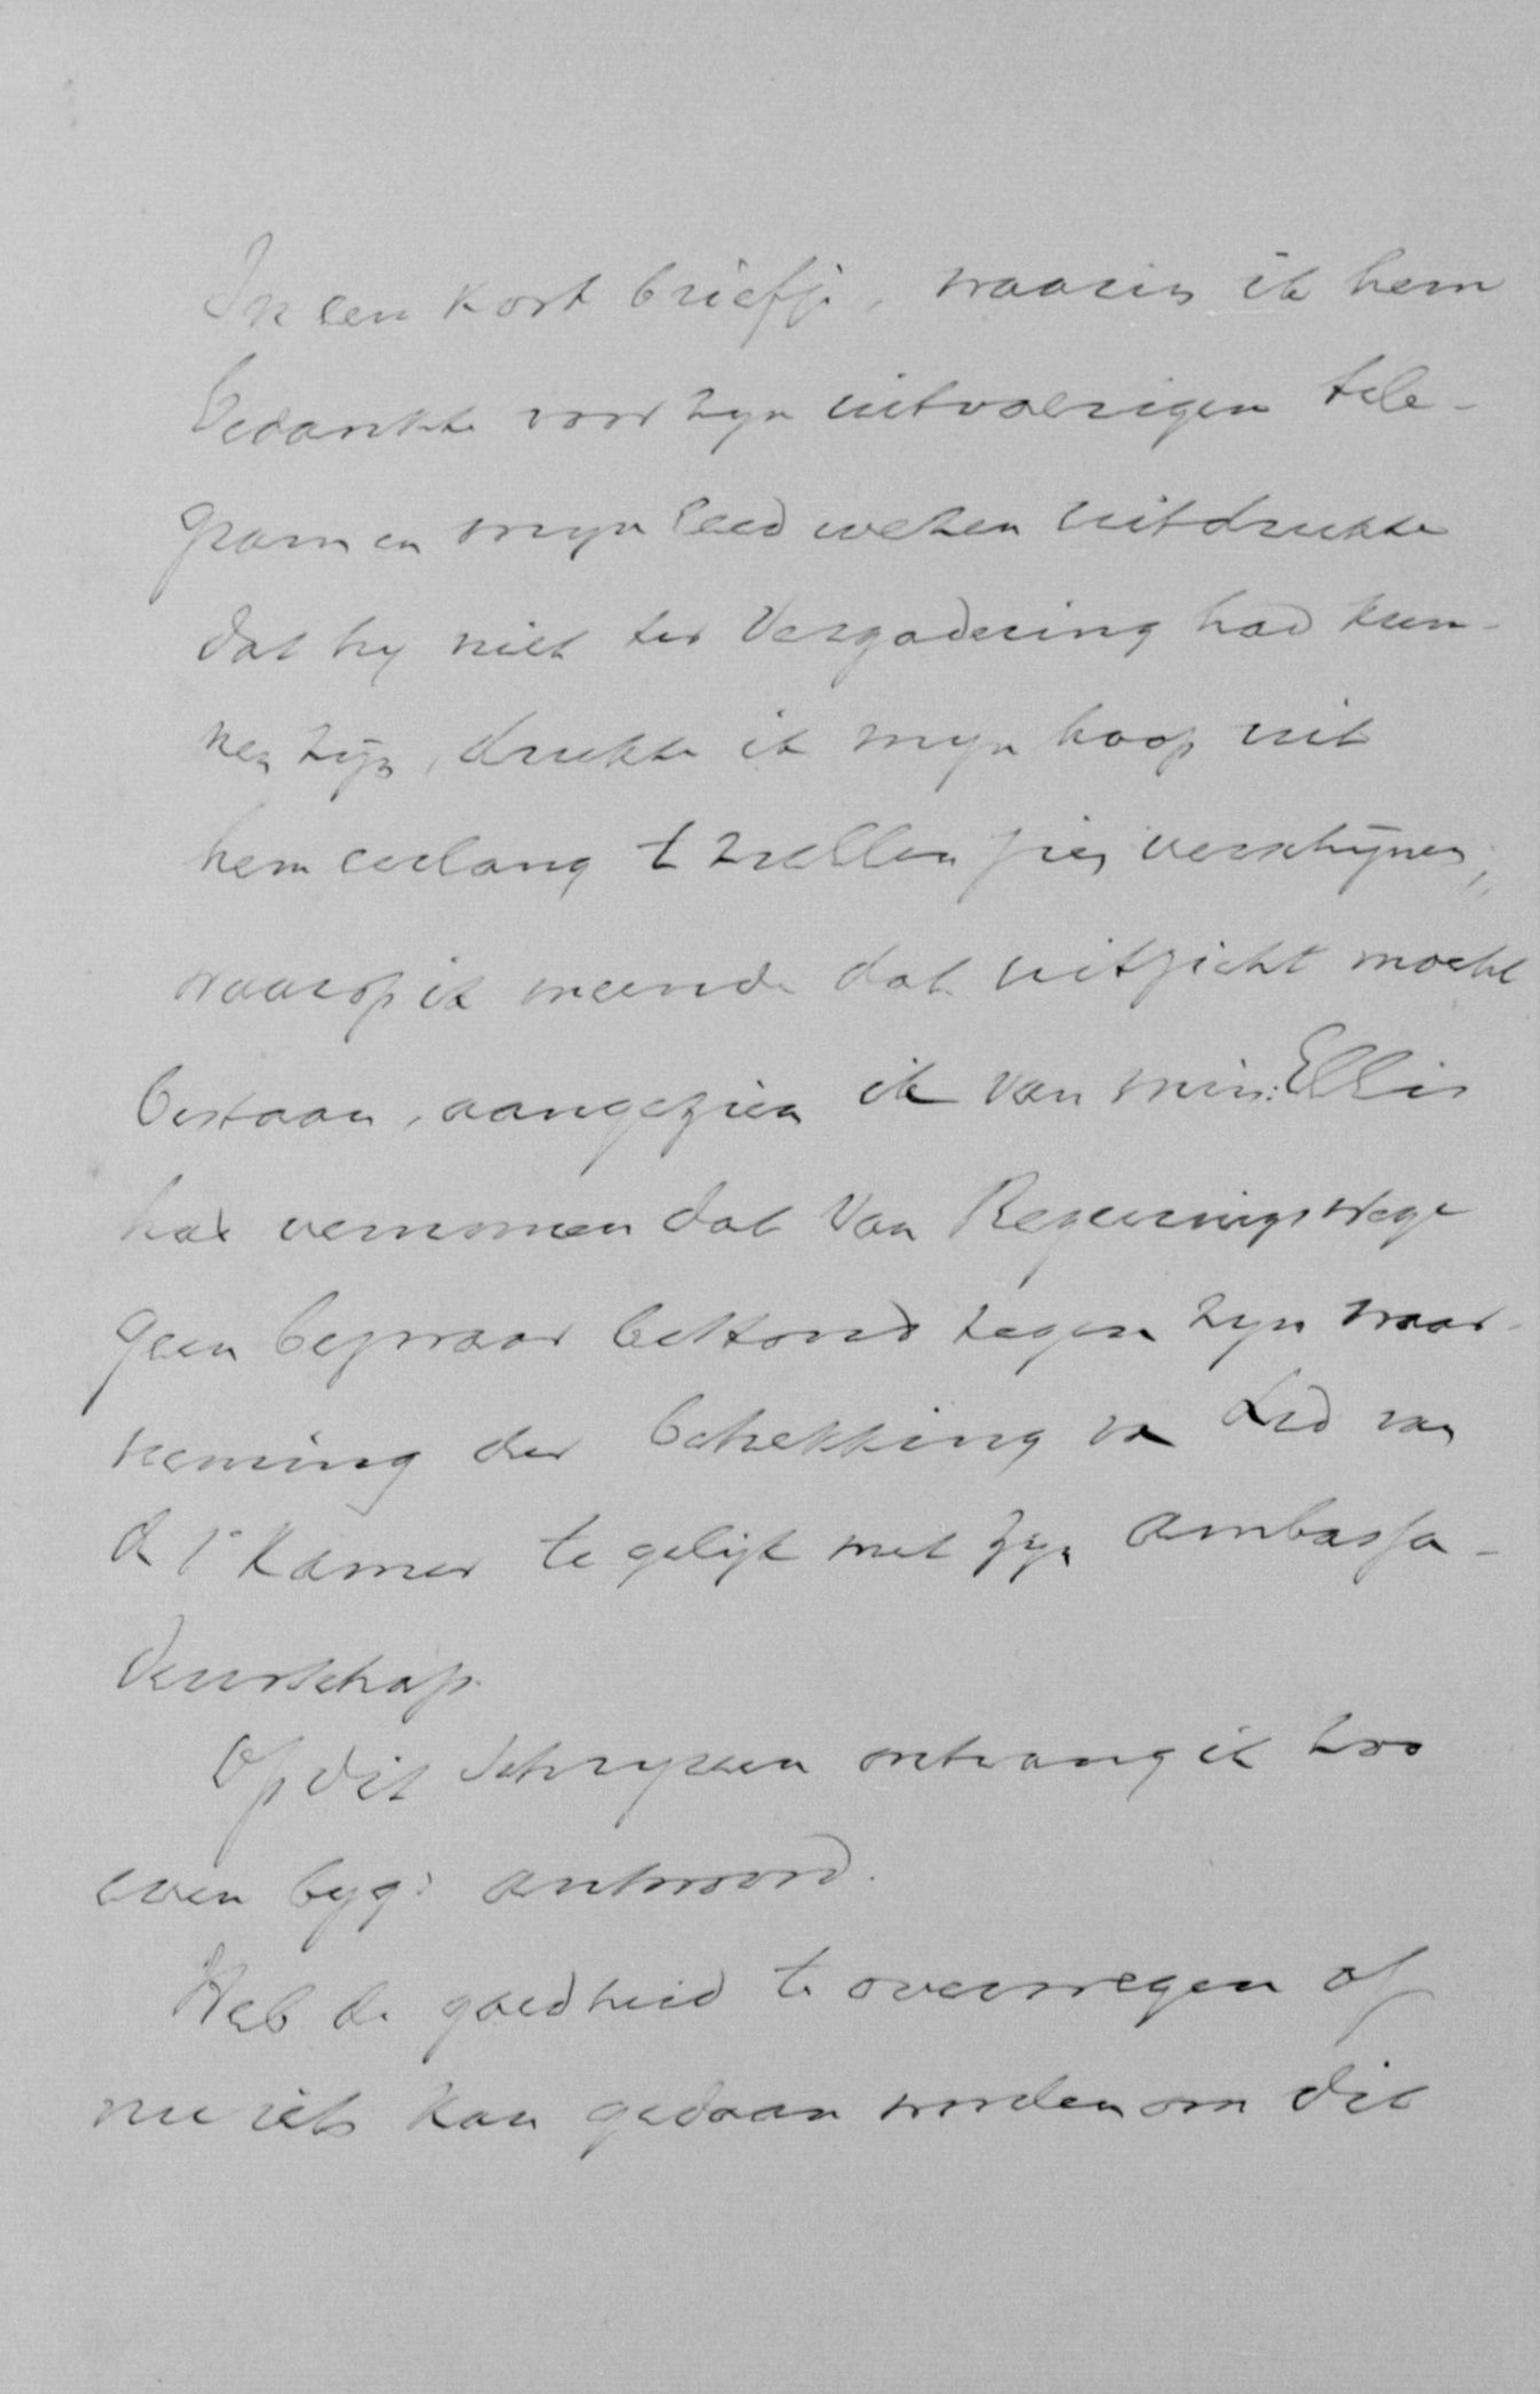 In een kort briefje, waarin ik hem
bedankte voor zyn uitvoerigen tele-
gram en myn leedwezen uitdrukte
dat hy niet ter Vergadering had kun-
nen zijn, drukte ik myn hoop uit
hem eerlang te zullen zien verschijnen,
waarop ik meende dat uitzicht mocht
bestaan, aangezien ik van min: Ellis
had vernomen dat van Regeeringswege
geen bezwaar bestond tegen zyn waar-
neming der betrekking va Lid van
de 1e Kamer te gelijk met zijn ambassa-
deurschap.
Op dit schryven ontvang ik zoo
even byg: antwoord.
Heb de goedheid te overwegen of
nu iets kan gedaan worden om dit